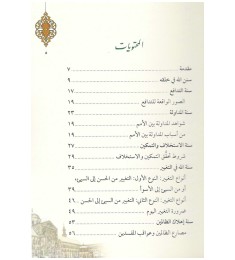 المحتويات
مقدمة ٧
سنن الله في خلقه ٩
سنة التدافع ١٧
الصور الواقعة للتدافع ١٩
سنة المداولة ٢٣
شواهد المداولة بين الأمم ١٩
من أسباب المداولة بين الأمم ١٩
سنة الاستخلاف والتمكين ٢٧
شروط تحقق التمكين والاستخلاف ٢٩
سنة الله في التغيير ٣٥
أنواع التغيير: النوع الأول: التغيير من الحسن إلى السيء،
أو من السيئ إلى الأسوأ ٣٩
أنواع التغيير: النوع الثاني: التغيير من السيء إلى الحسن ٤٦
ضرورة التغيير اليوم ٥٩
سنة إهلاك الظالمين ٥٣
مصارع الظالمين وعواقب المفسدين ٥٦